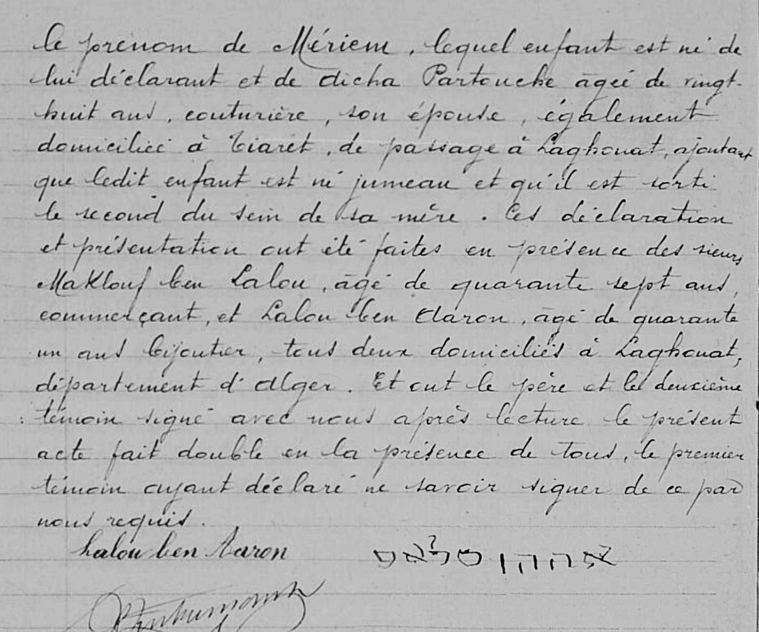 le prénom de Mériem, lequel enfant est né de
lui déclarant et de Aicha Partouche âgée de vingt-
huit ans, couturière, son épouse, également
domiciliée à Tiaret, de passage à Laghouat, ajoutant
que ledit enfant est né jumeau et qu'il est sorti
le second du sein de sa mère. Ces déclaration
et présentation ont été faites en présence des sieurs
Maklouf ben Lalou, âgé de quarante sept ans,
commerçant, et Lalou ben Aaron, âgé de quarante
un ans bijoutier, tous deux domiciliés à Laghouat,
département d'Alger. Et ont le père et le deuxième
témoin signé avec nous après lecture le présent
acte fait double en la présence de tous, le premier
témoin ayant déclaré ne savoir signer de ce par
nous requis.
Lalou ben Aaron